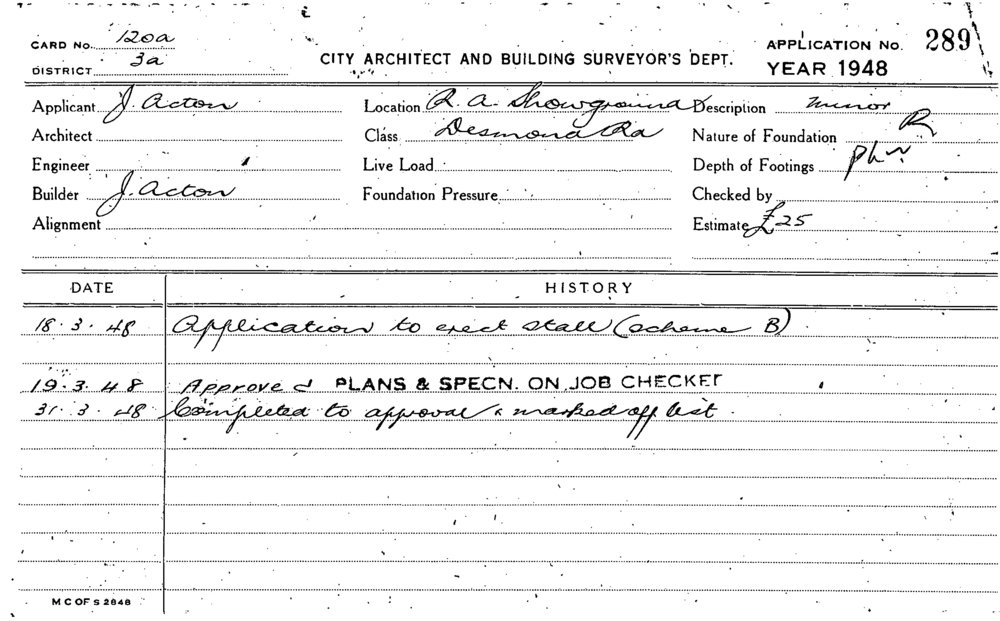 CARD No. 120a
DISTRICT 3a
CITY ARCHITECT AND BUILDING SURVEYOR'S DEPT.
APPLICATION No. 289
YEAR 1948
Applicant J. Acton Location R. A. Showground Description minor
Architect Class Desmond Rd Nature of Foundation R
Engineer Live Load Depth of Footings
Builder J. Acton Foundation Pressure Checked by
Alignment Estimate £25
DATE HISTORY
18.3.48 Application to erect stall (scheme B)
19.3.48 Approved PLANS & SPECN. ON JOB CHECKET
31.3.48 Completed to approval & marked off list.
M C OF S 2848